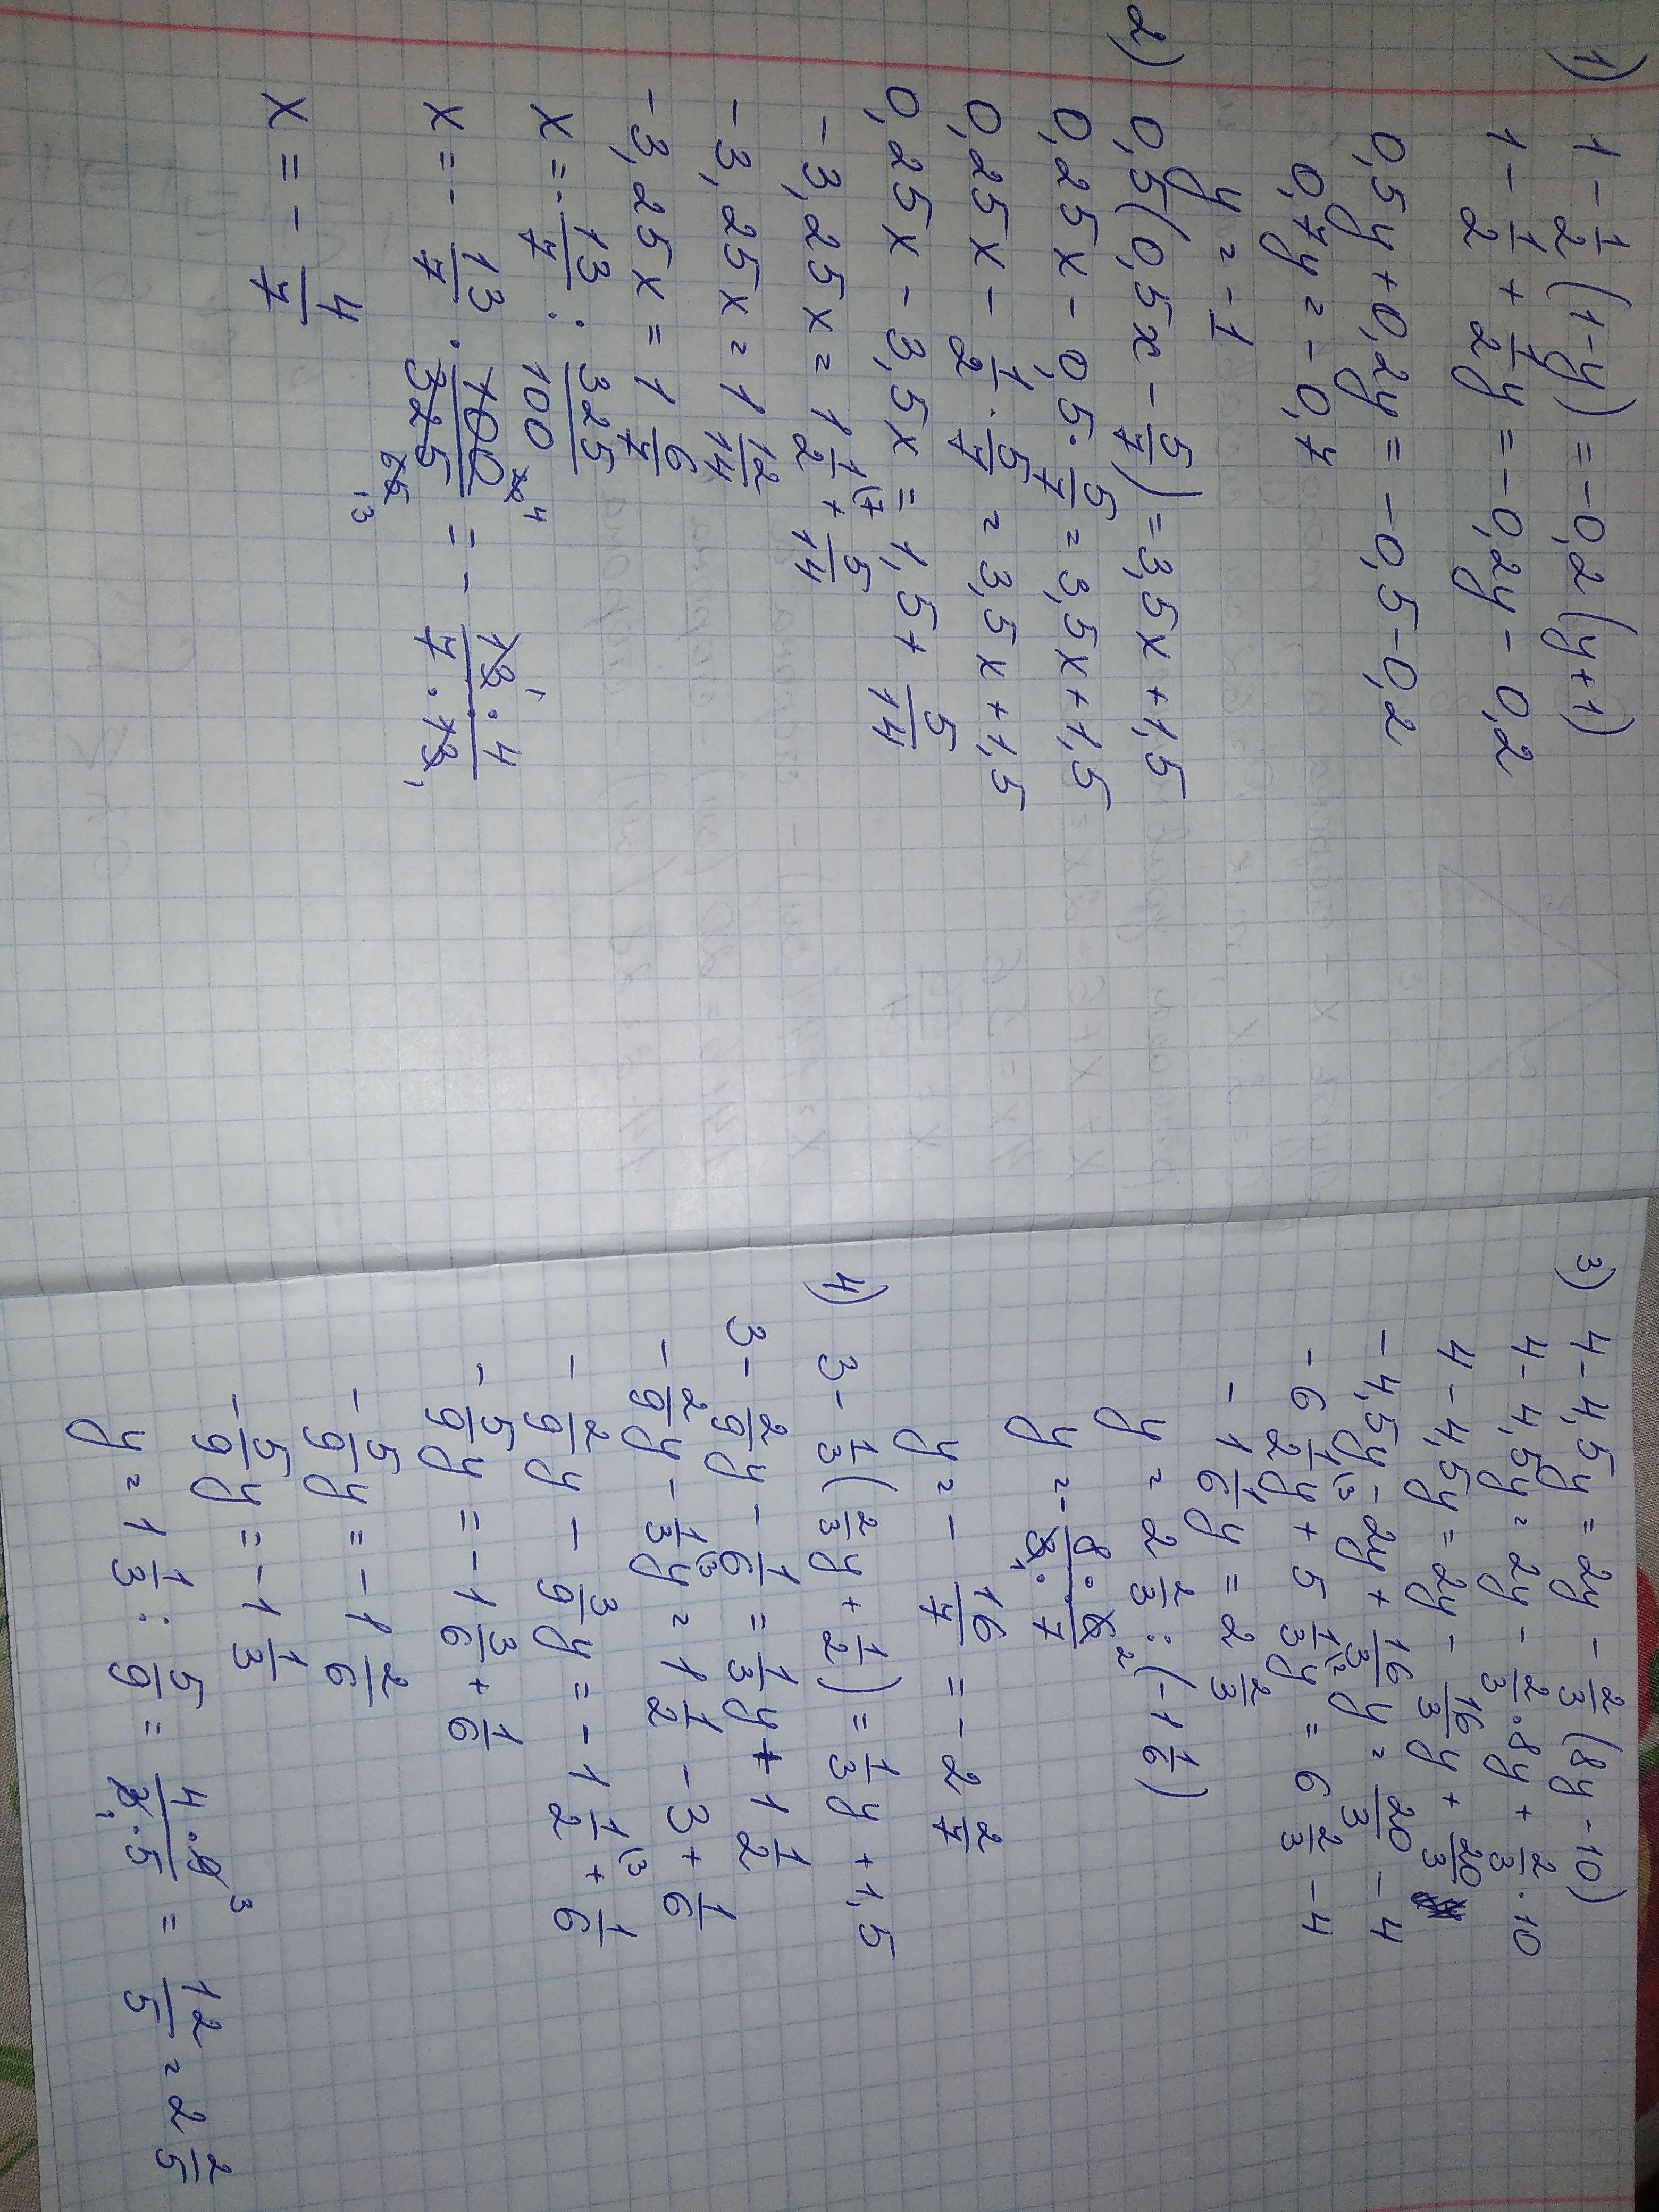 1) 1 - 1/2 (1-y) = -0,2(y+1)
1 - 1/2 + 1/2 y = -0,2y - 0,2
0,5y + 0,2y = -0,5 - 0,2
0,7y = -0,7
y = -1
2) 0,5(0,5x - 5/7) = 3,5x + 1,5
0,25x - 0,5 · 5/7 = 3,5x + 1,5
0,25x - 1/2 · 5/7 = 3,5x + 1,5
0,25x - 3,5x = 1,5 + 5/14
-3,25x = 1 1/2 (7 + 5/14
-3,25x = 1 12/14
-3,25x = 1 6/7
x = - 13/7 : 325/100
x = - 13/7 · 100 20 4/325 65 13 = - 13 1 · 4/7 · 13 1
x = - 4/7
3) 4 - 4,5y = 2y - 2/3 (8y - 10)
4 - 4,5y = 2y - 2/3 · 8y + 2/3 · 10
4 - 4,5y = 2y - 16/3 y + 20/3
-4,5y - 2y + 16/3 y = 20/3 - 4
-6 1/2 (3 y + 5 1/3 (2 y = 6 2/3 - 4
-1 1/6 y = 2 2/3
y = 2 2/3 : (-1 1/6)
y = - 8 · 6 2/3 1 · 7
y = - 16/7 = -2 2/7
4) 3 - 1/3 (2/3 y + 1/2) = 1/3 y + 1,5
3 - 2/9 y - 1/6 = 1/3 y + 1 1/2
- 2/9 y - 1/3 (3 y = 1 1/2 - 3 + 1/6
- 2/9 y - 3/9 y = -1 1/2 (3 + 1/6
- 5/9 y = -1 3/6 + 1/6
- 5/9 y = -1 2/6
- 5/9 y = -1 1/3
y = 1 1/3 : 5/9 = 4 · 9 3/3 1 · 5 = 12/5 = 2 2/5